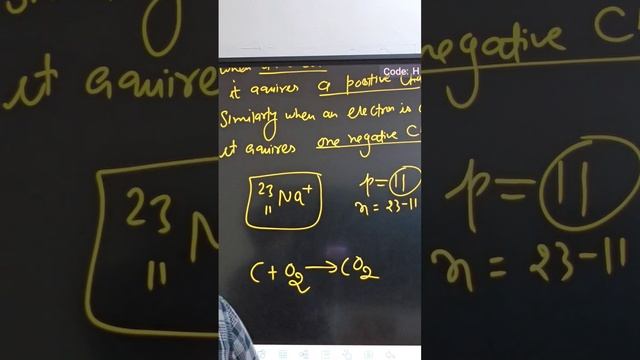 Code: H
it aquires a positive
Similarly when an electron is
it aquires one negative C
²³₁₁Na⁺
p = 11
n = 23-11
C + O₂ → CO₂
it aquires
negative C
²³₁₁N
p = 11
n = 23-11